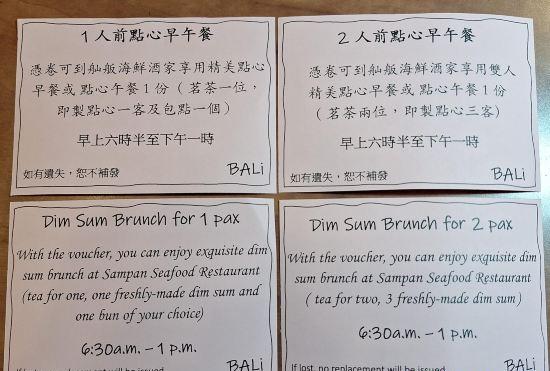 1人前點心早午餐
憑卷可到舢舨海鮮酒家享用精美點心
早餐或 點心午餐 1 份 ( 茗茶一位，
即製點心一客及包點一個 )
早上六時半至下午一時
如有遺失，恕不補發
BALi
2人前點心早午餐
憑卷可到舢舨海鮮酒家享用雙人
精美點心早餐或 點心午餐 1 份
( 茗茶兩位，即製點心三客)
早上六時半至下午一時
如有遺失，恕不補發
BALi
Dim Sum Brunch for 1 pax
With the voucher, you can enjoy exquisite dim
sum brunch at Sampan Seafood Restaurant
(tea for one, one freshly-made dim sum and
one bun of your choice)
6:30a.m. – 1 p.m.
If lost, no replacement will be issued
BALi
Dim Sum Brunch for 2 pax
With the voucher, you can enjoy exquisite dim
sum brunch at Sampan Seafood Restaurant
( tea for two, 3 freshly-made dim sum )
6:30a.m. – 1 p.m.
If lost, no replacement will be issued
BALi